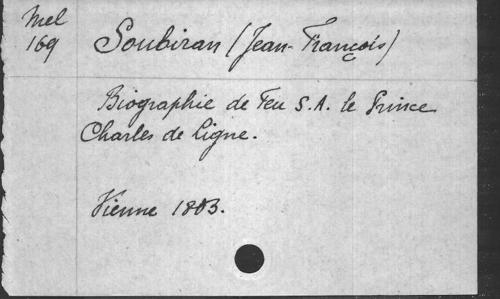 Mel
169
Soubiran (Jean-François)
Biographie de Feu S.A. le Prince
Charles de Ligne.
Vienne 1803.